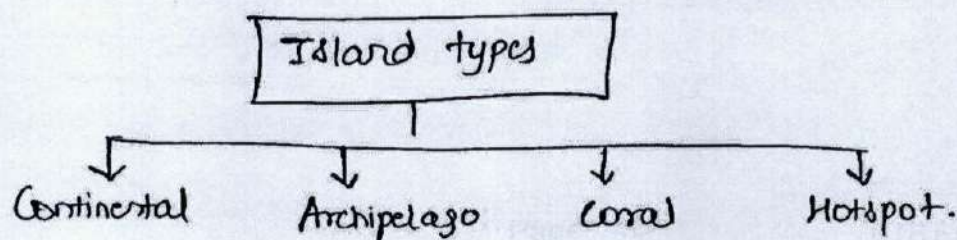 Island types
Continental Archipelago Coral Hotspot.